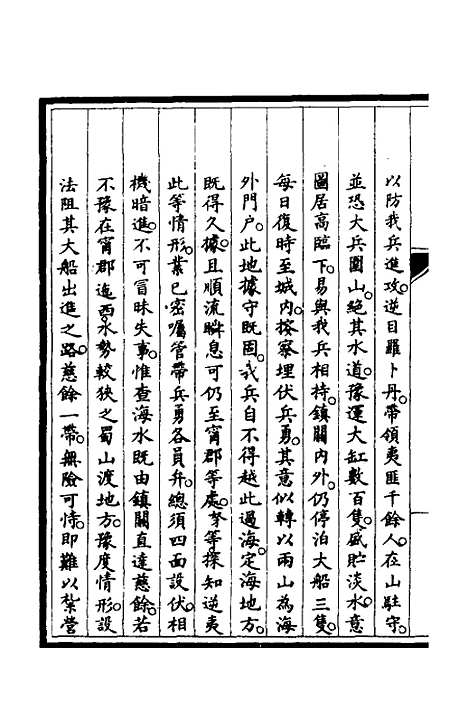 以防我兵進攻。逆目羅卜丹。帶領夷匪千餘人。在山駐守。
並恐大兵圍山。絕其水道。豫運大缸數百隻。盛貯淡水。意
圖居高臨下。易與我兵相持。鎮關內外。仍停泊大船三隻。
每日復時至城內。搜察埋伏兵勇。其意似轉以兩山為海
外門戶。此地據守既固。我兵自不得越此過海。定海地方。
既得久據。且順流瞬息可仍至甯郡等處。等探知逆夷
此等情形。業已密囑管帶兵勇各員弁。總須四面設伏。相
機暗進。不可冒昧失事。惟查海水既由鎮關直達慈餘。若
不豫在甯郡迤西水勢較狹之蜀山渡地方。豫度情形。設
法阻其大船出進之路。慈餘一帶。無險可恃。即難以紮營